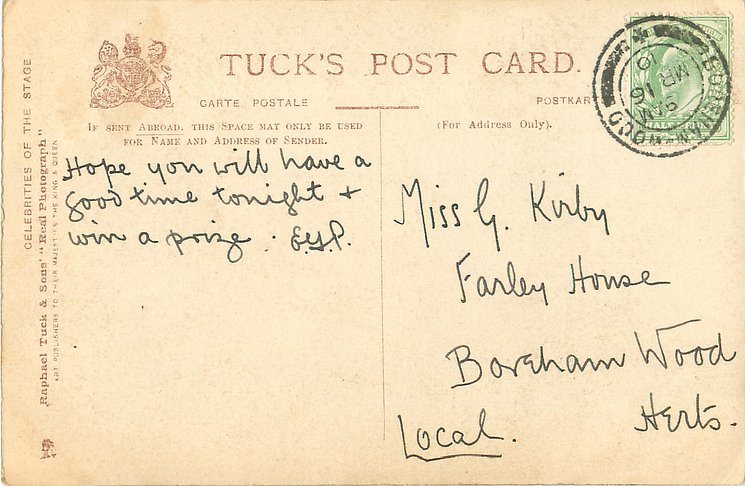 TUCK'S POST CARD.
CARTE POSTALE
POSTKAR
IF SENT ABROAD. THIS SPACE MAY ONLY BE USED
FOR NAME AND ADDRESS OF SENDER.
(For Address Only).
Hope you will have a
good time tonight +
win a prize. E.G.P.
Miss G. Kirby
Farley House
Boreham Wood
Herts.
Local.
CELEBRITIES OF THE STAGE
Raphael Tuck & Sons' "Real Photograph"
ART PUBLISHERS TO THEIR MAJESTIES THE KING & QUEEN
BOREHAM WOOD
MR 16
10